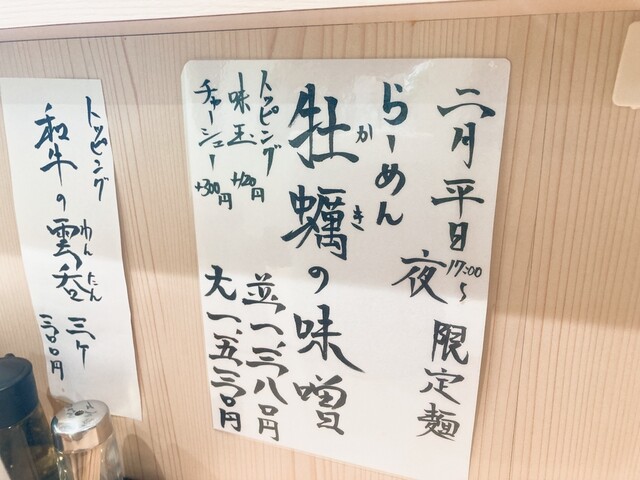 二月平日夜17:00〜限定麺
らーめん
牡蠣の味噌
かき
トッピング
味玉 +120円
チャーシュー +300円
並一、三八〇円
大一、五三〇円
トッピング
和牛の雲呑 三ケ 三〇〇円
わんたん